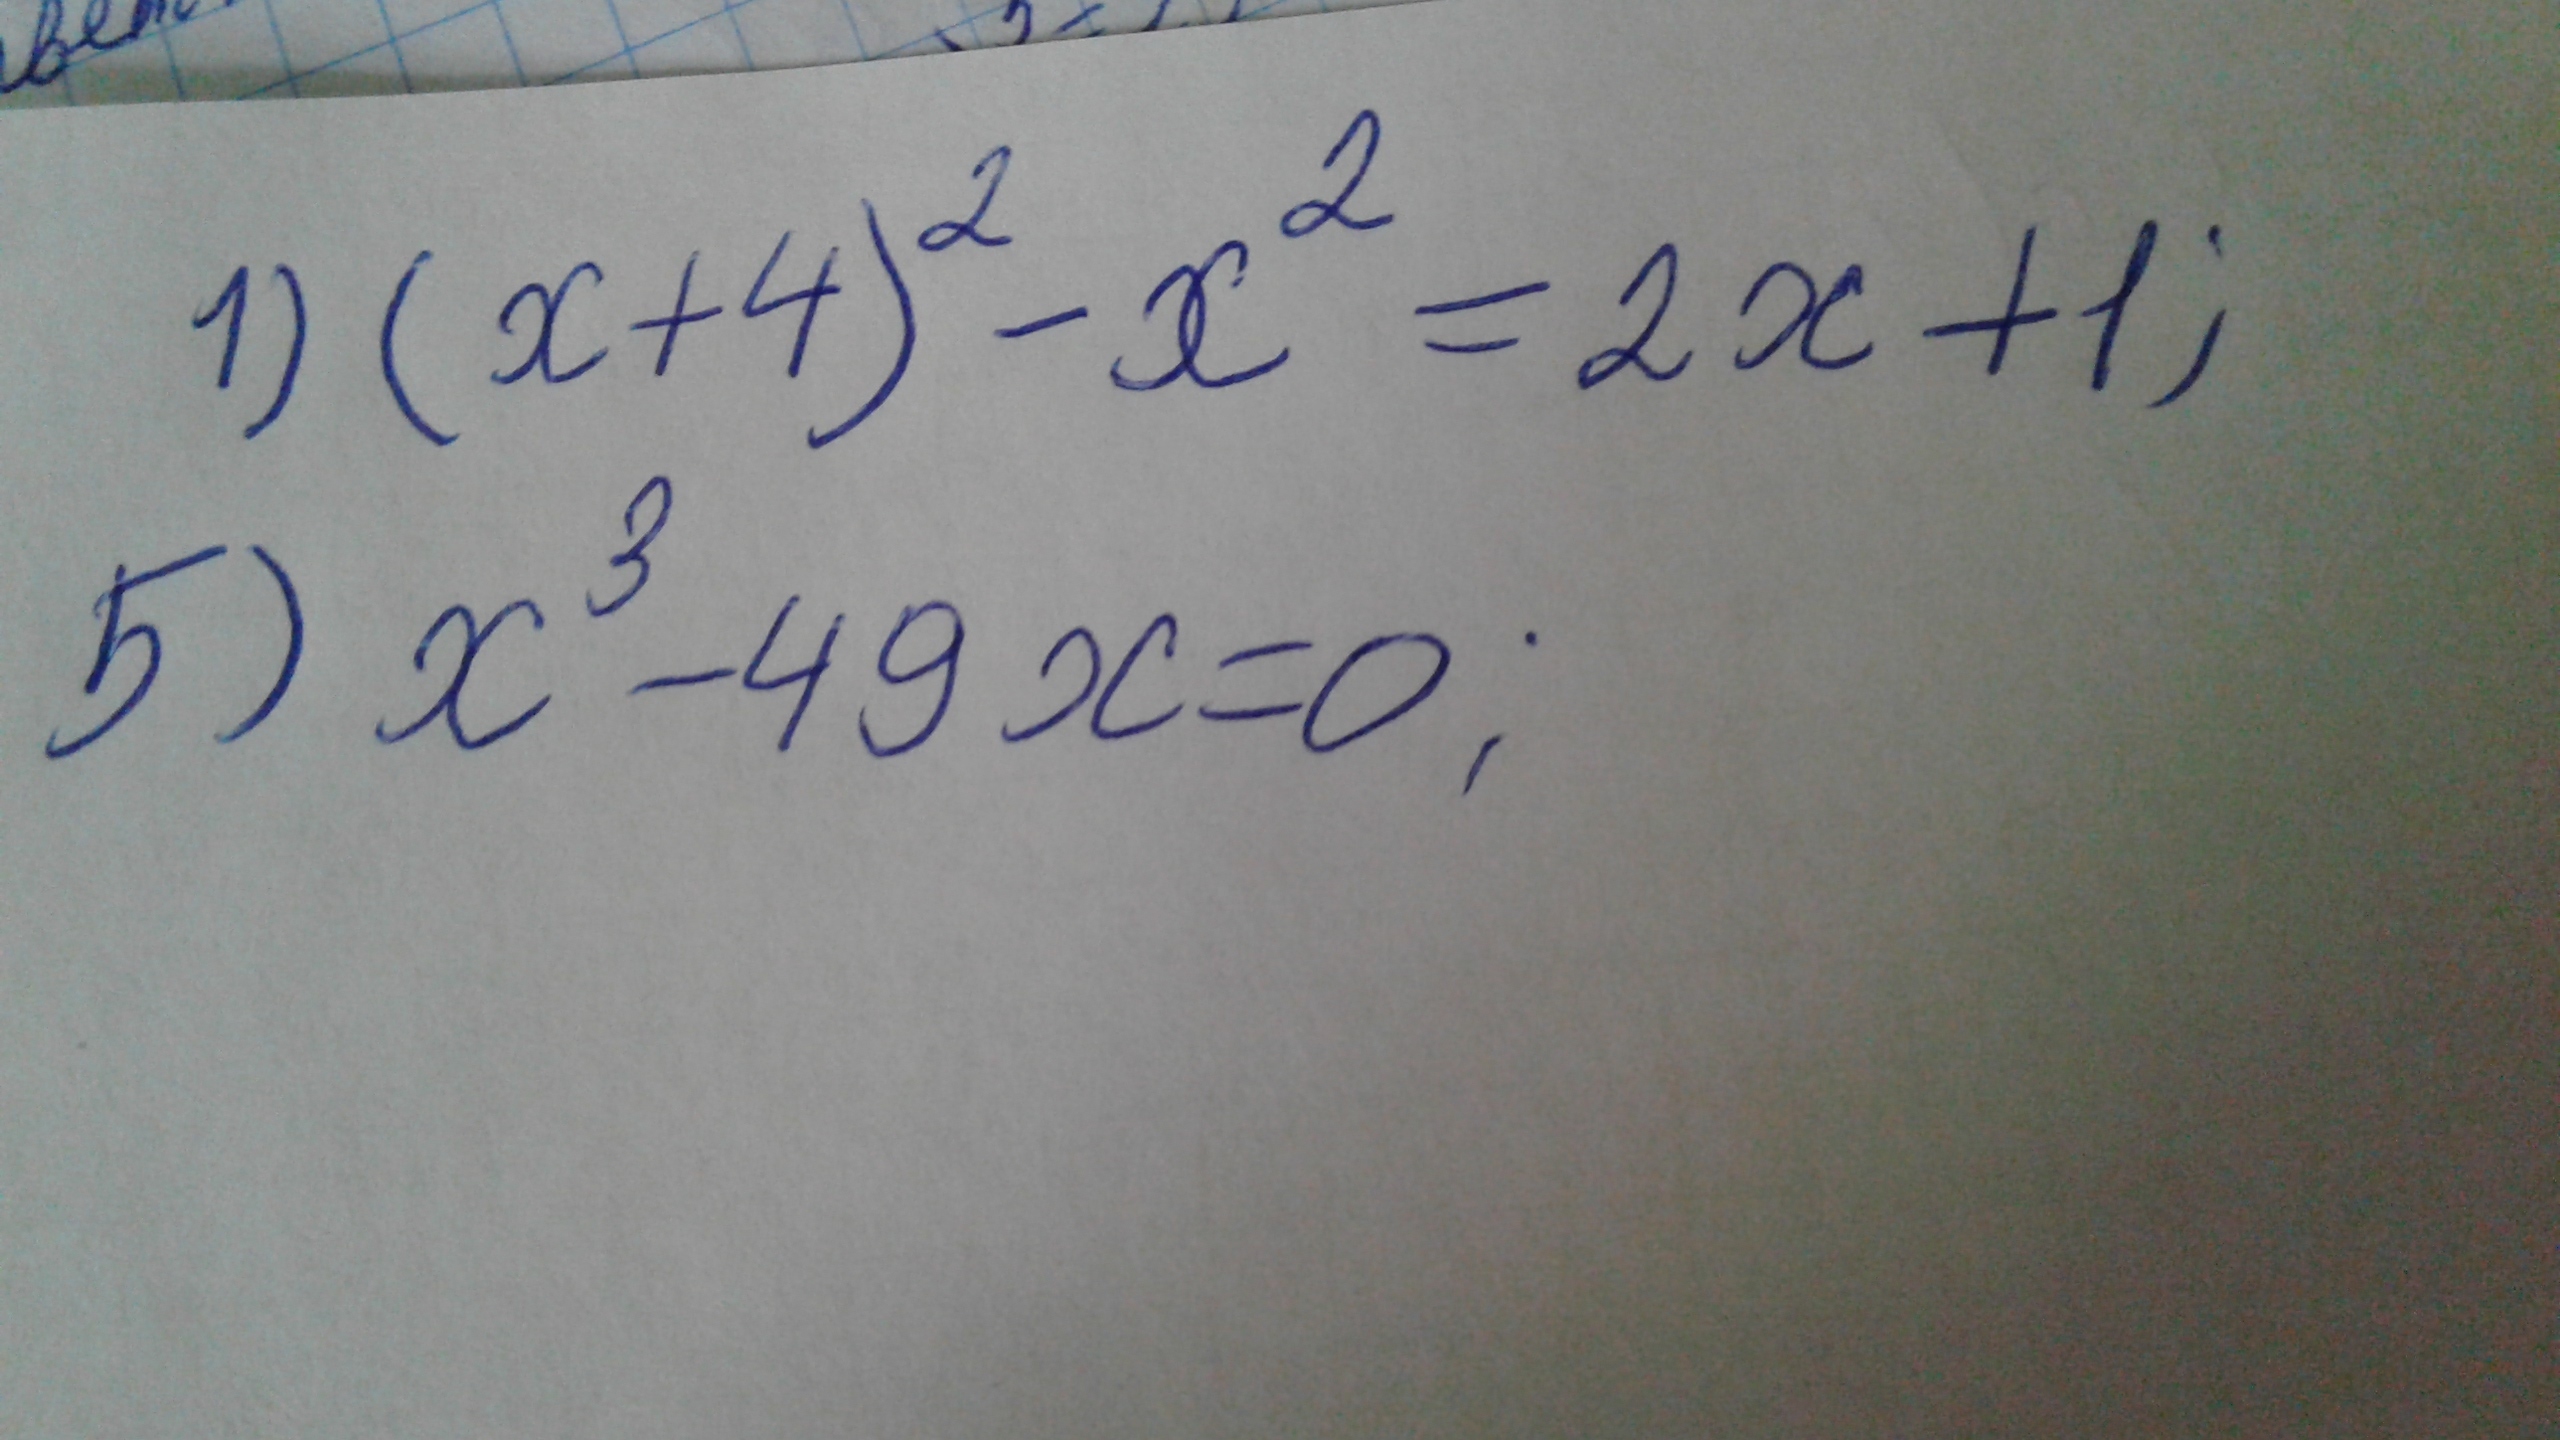 1) (x+4)² - x² = 2x+1;
5) x³ - 49x=0;